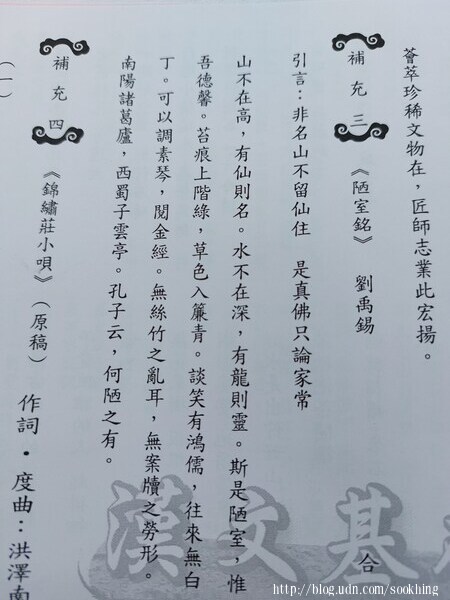 薈萃珍稀文物在，匠師志業此宏揚。
補充三 《陋室銘》 劉禹錫
引言：非名山不留仙住 是真佛只論家常
山不在高，有仙則名。水不在深，有龍則靈。斯是陋室，惟
吾德馨。苔痕上階綠，草色入簾青。談笑有鴻儒，往來無白
丁。可以調素琴，閱金經。無絲竹之亂耳，無案牘之勞形。
南陽諸葛廬，西蜀子雲亭。孔子云，何陋之有。
補充四 《錦繡莊小唄》（原稿） 作詞·度曲：洪澤南
（一）
漢文基
合
http://blog.udn.com/sookhing